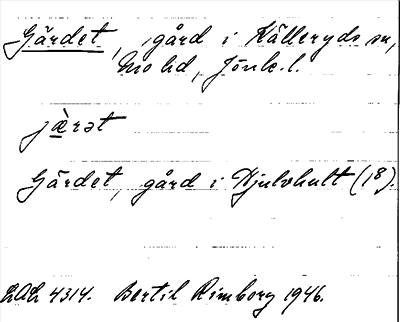 Gärdet, gård i Källeryds sn,
Mo hd, Jönk. l.
jæ̀rət
Gärdet, gård i Hjulshult (1⁸).
LAL 4314. Bertil Rimborg 1946.